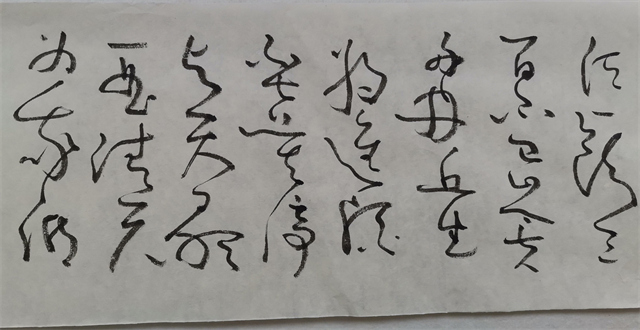 须一饮三
百杯岑夫
子丹丘生
将进酒
杯莫停
与君歌
一曲请君
为我倾